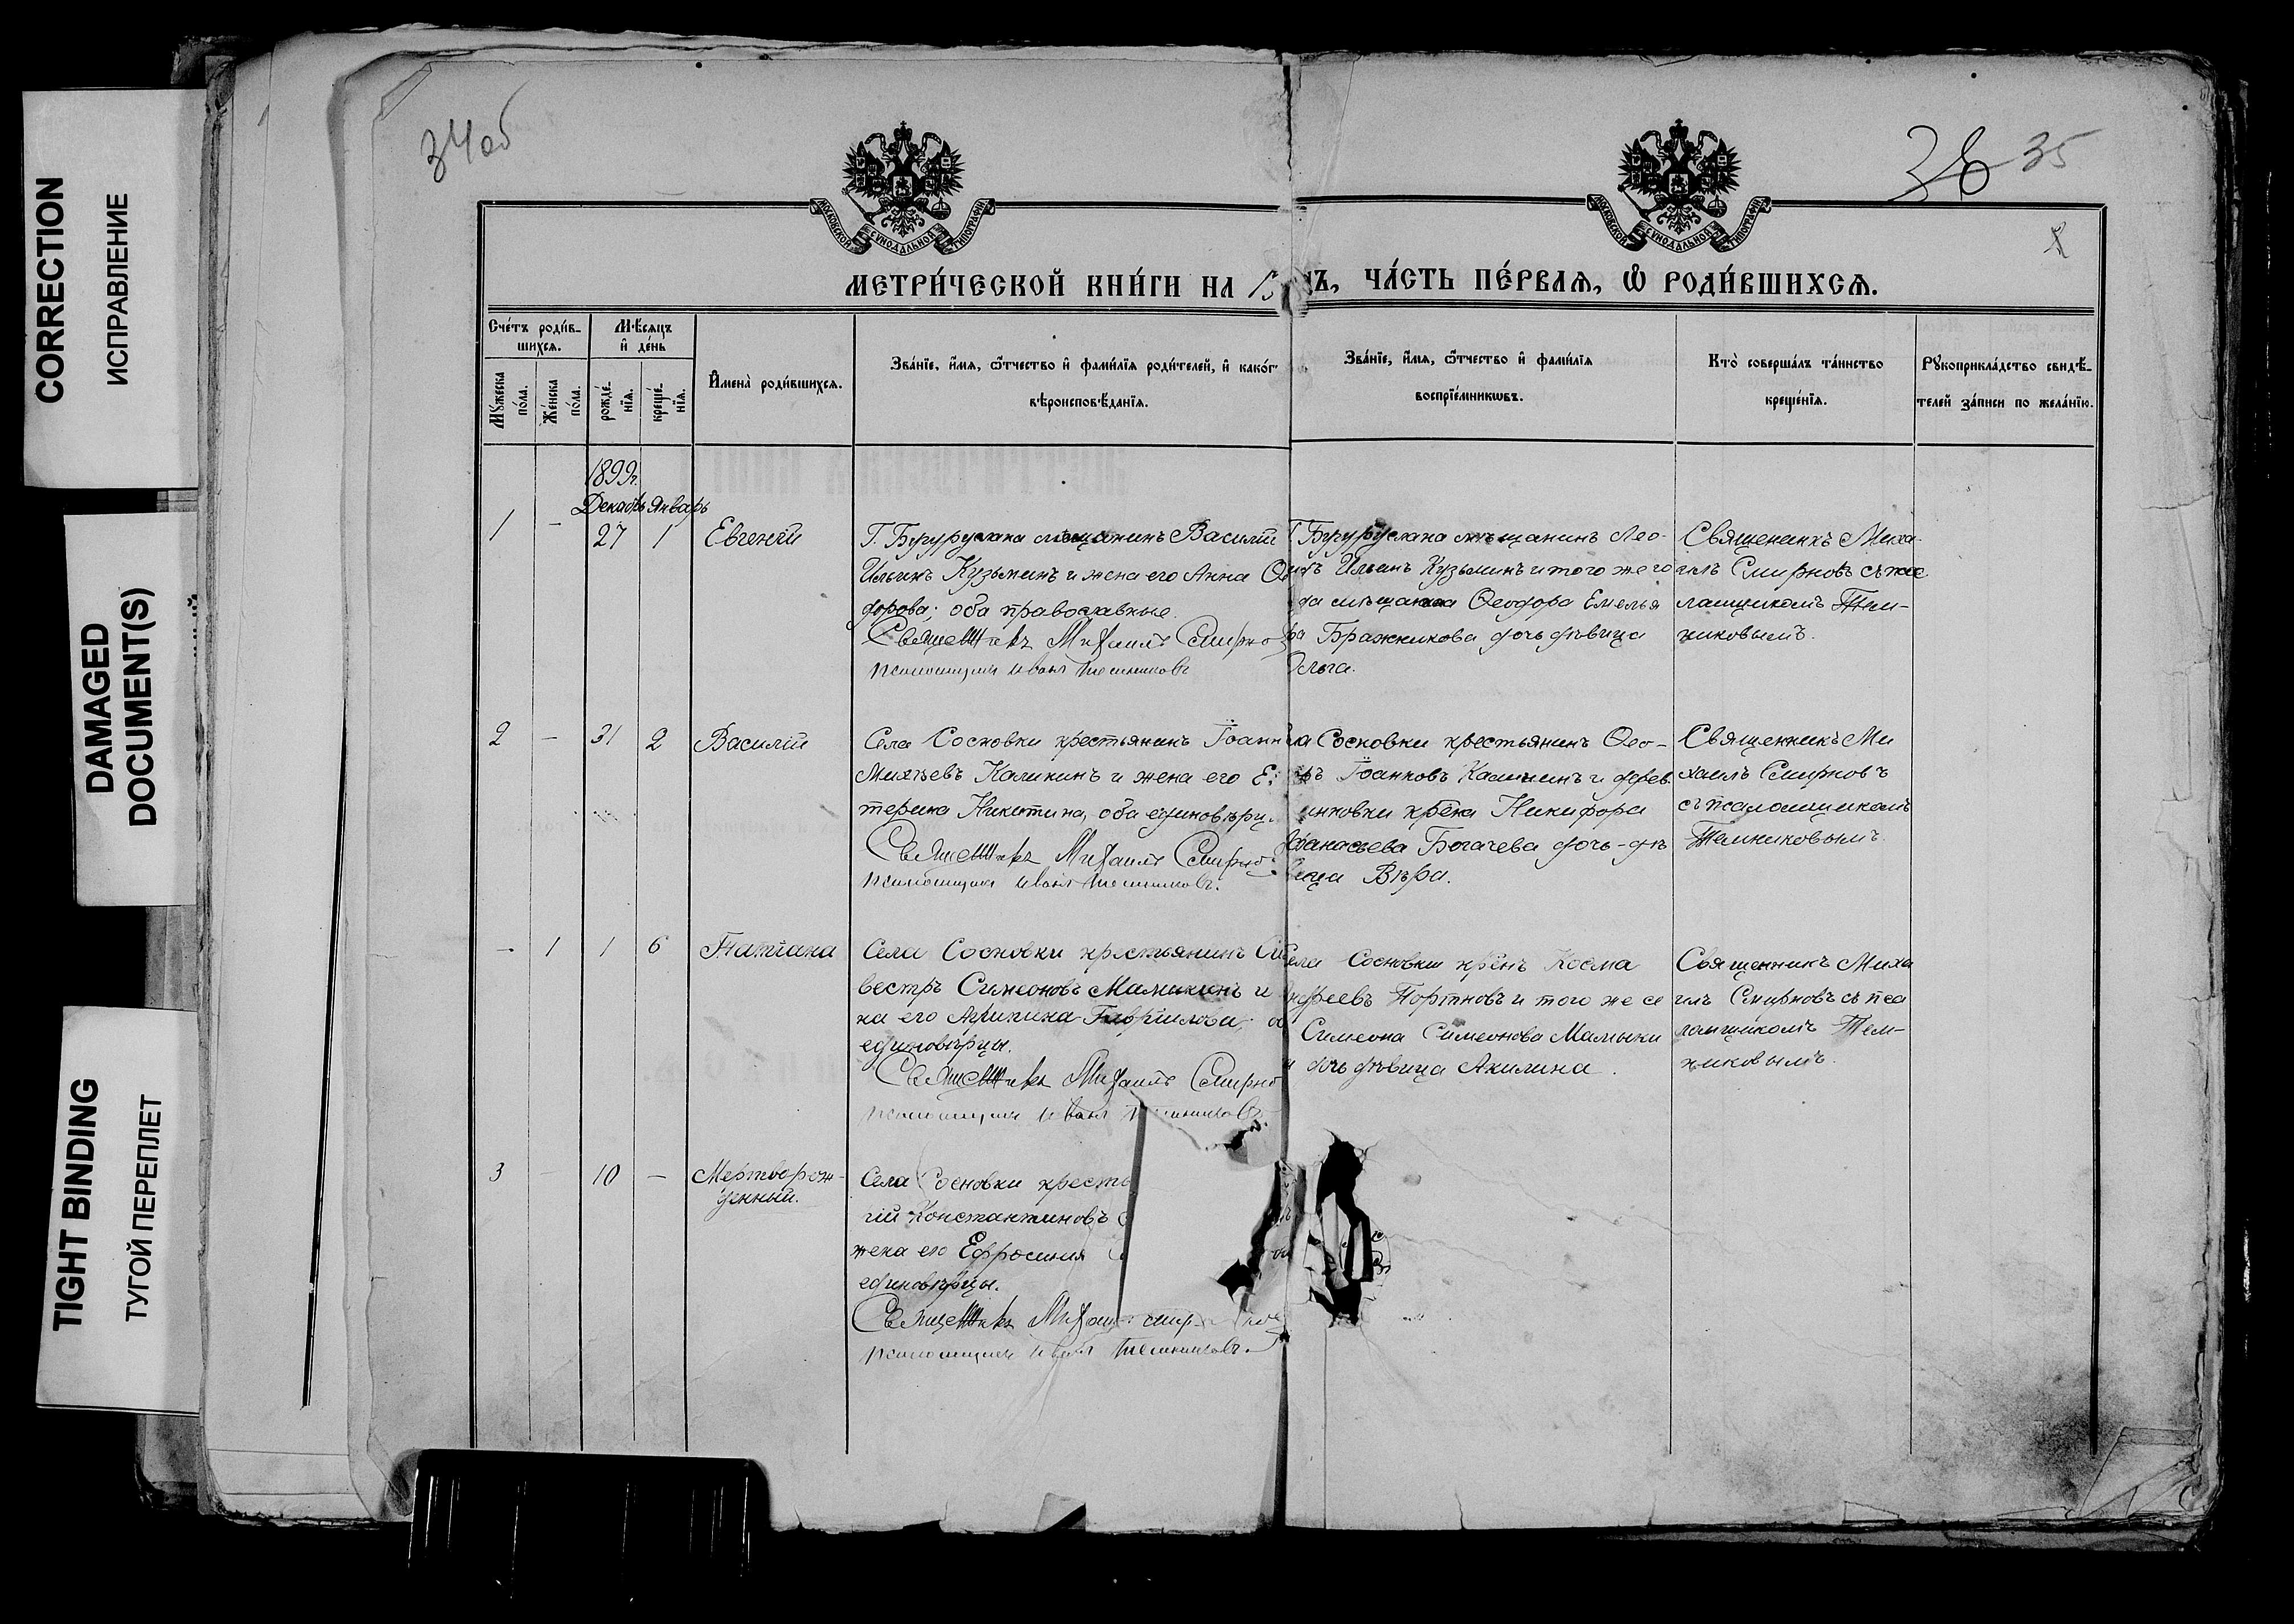 CORRECTION
ИСПРАВЛЕНИЕ
DAMAGED
DOCUMENT(S)
TIGHT BINDING
ТУГОЙ ПЕРЕПЛЕТ
34об
35
МОСКОВСКОЙ СѴНОДАЛЬНОЙ ТИПОГРАФІИ
МОСКОВСКОЙ СѴНОДАЛЬНОЙ ТИПОГРАФІИ
МЕТРИ́ЧЕСКОЙ КНИ́ГИ НА
Ъ, ЧА́СТЬ ПЕ́РВАѦ, Ѡ҆ РОДИ́ВШИХСѦ.
Сче́тъ роди́в-
шихсѧ.
Мѣ́сѧцъ
и҆ де́нь
Мꙋ́жеска
по́ла.
Же́нска
по́ла.
рожде́-
нїѧ.
креще́-
нїѧ.
И҆мена̀ роди́вшихсѧ.
Зва́нїе, и҆́мѧ, ѻ҆́тчество и҆ фами́лїѧ роди́телей, и҆ како́г
вѣроисповѣ́данїѧ.
Зва́нїе, и҆́мѧ, ѻ҆́тчество и҆ фами́лїѧ
воспрїе́мникѡвъ.
Кто̀ соверша́лъ та́инство
креще́нїѧ.
Рꙋкоприкла́дство свидѣ́-
телей за́писи по жела́нїю.
1899г.
Декабрь Январь
1 - 27 1 Евгеній
Г. Бугуруслана мѣщанинъ Василій
Ильинъ Кузьминъ и жена его Анна Ѳе
дорова; оба православные.
Священникъ Михаилъ Смирно
псаломщикъ Иванъ Темниковъ
Г Бугуруслана мѣщанинъ Лео-
Ильинъ Кузьминъ и того же го
да мѣщанина Ѳеодора Емелья
Бражникова дочь дѣвица
Ольга.
Священникъ Миха-
илъ Смирновъ съ пса
ломщикомъ Тем-
никовымъ.
2 - 31 2 Василій
Села Сосновки крестьянинъ Іоанн
Михѣевъ Калинин и жена его Е
терина Никитина, оба единовѣрц
Священникъ Михаилъ Смирно
псаломщикъ Иванъ Темниковъ.
ла Сосновки крестьянинъ Ѳео-
ръ Іоанновъ Калининъ и дерев.
инковки крена Никифора
Аѳанасьева Богачева дочь-дѣ
вица Вѣра.
Священникъ Ми
хаилъ Смирновъ
съ псаломщикомъ
Темниковымъ.
- 1 1 6 Татіана
Села Сосновки крестьянинъ Сил
вестръ Симеоновъ Мамыкинъ и
на его Агрипина Гавріилова; об
единовѣрцы.
Священникъ Михаилъ Смирно
псаломщикъ Иванъ Темниковъ.
Села Сосновки крнъ Косма
Андреевъ Портновъ и того же се
Симеона Симеонова Мамыки
дочь дѣвица Акилина.
Священникъ Миха
илъ Смирновъ съ пса
ломщикомъ Тем-
никовымъ.
3 10 - Мертворож-
денный.
Села Сосновки кресть
гій Константиновъ
жена его Ефросинія
единовѣрцы.
Священникъ Михаи
псаломщикъ Иванъ Темниковъ.